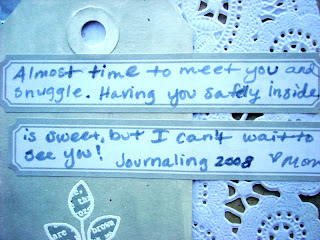 Almost time to meet you and
snuggle. Having you safely inside
is sweet, but I can't wait to
see you! Journaling 2008 ♡ Mom
the
are brown